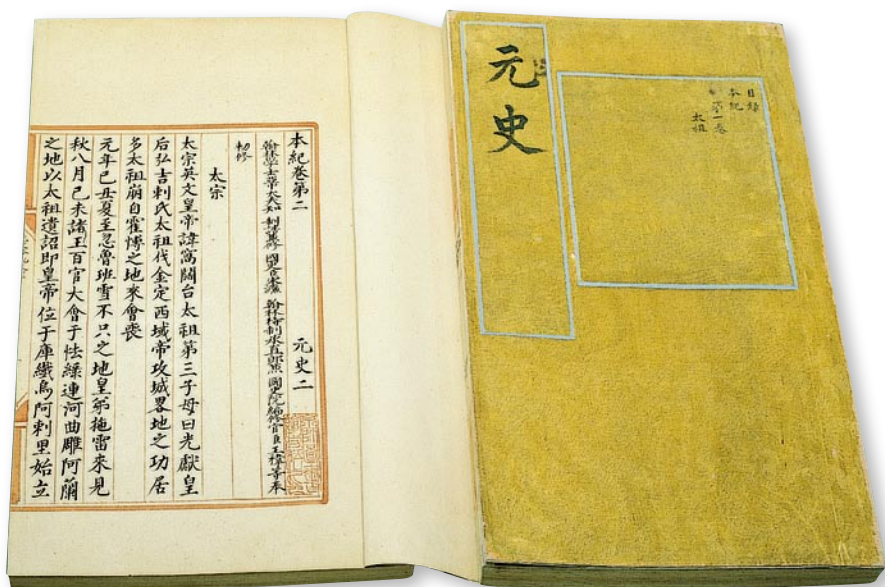 元史
目錄
本紀
第一卷
太祖
本紀卷第二 元史二
翰林學士亞中大夫知 制誥兼修 國史臣宋濂 翰林待制承直郎兼 國史院編修官臣王禕等奉
勅修
太宗
太宗英文皇帝諱窩闊台太祖第三子母曰光獻皇
后弘吉剌氏太祖伐金定西域帝攻城畧地之功居
多太祖崩自霍博之地來會喪
元年己丑夏至忽魯班雪不只之地皇弟拖雷來見
秋八月己未諸王百官大會于怯綠連河曲雕阿蘭
之地以太祖遺詔即皇帝位于庫鐵烏阿剌里始立